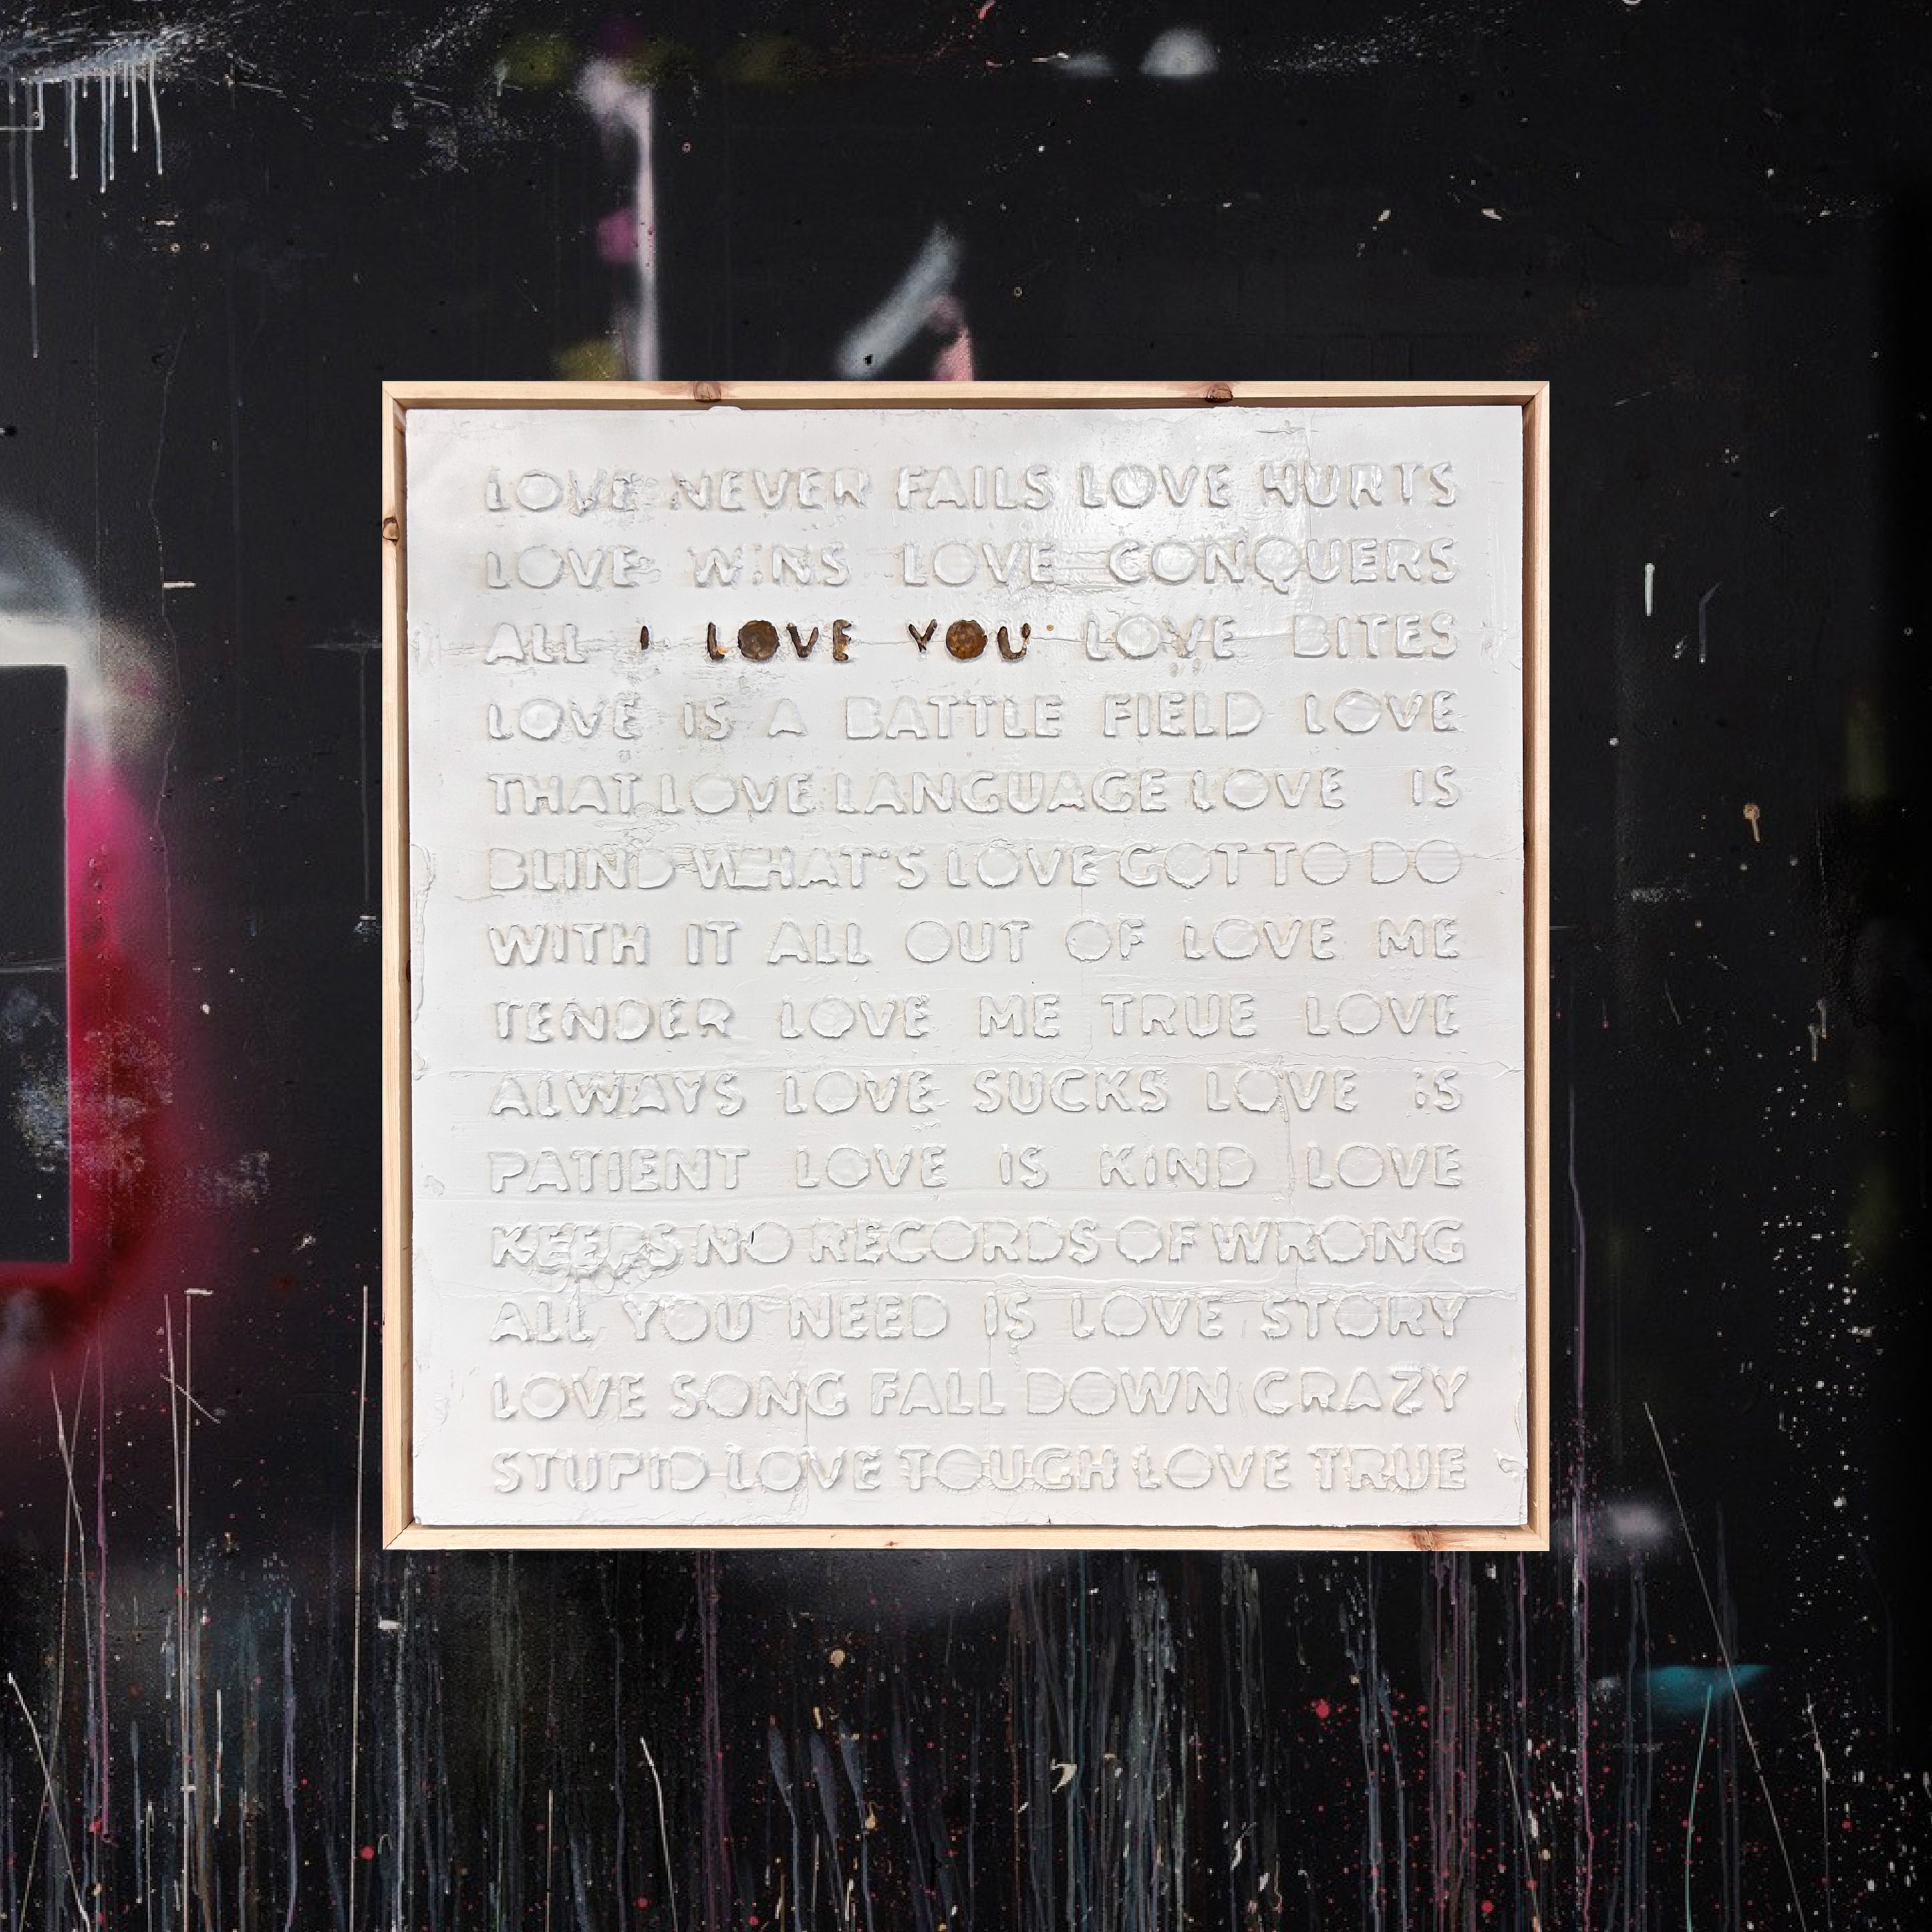 LOVE NEVER FAILS LOVE HURTS
LOVE WINS LOVE CONQUERS
ALL I LOVE YOU LOVE BITES
LOVE IS A BATTLE FIELD LOVE
THAT LOVE LANGUAGE LOVE IS
BLIND WHAT'S LOVE GOT TO DO
WITH IT ALL OUT OF LOVE ME
TENDER LOVE ME TRUE LOVE
ALWAYS LOVE SUCKS LOVE IS
PATIENT LOVE IS KIND LOVE
KEEPS NO RECORDS OF WRONG
ALL YOU NEED IS LOVE STORY
LOVE SONG FALL DOWN CRAZY
STUPID LOVE TOUGH LOVE TRUE